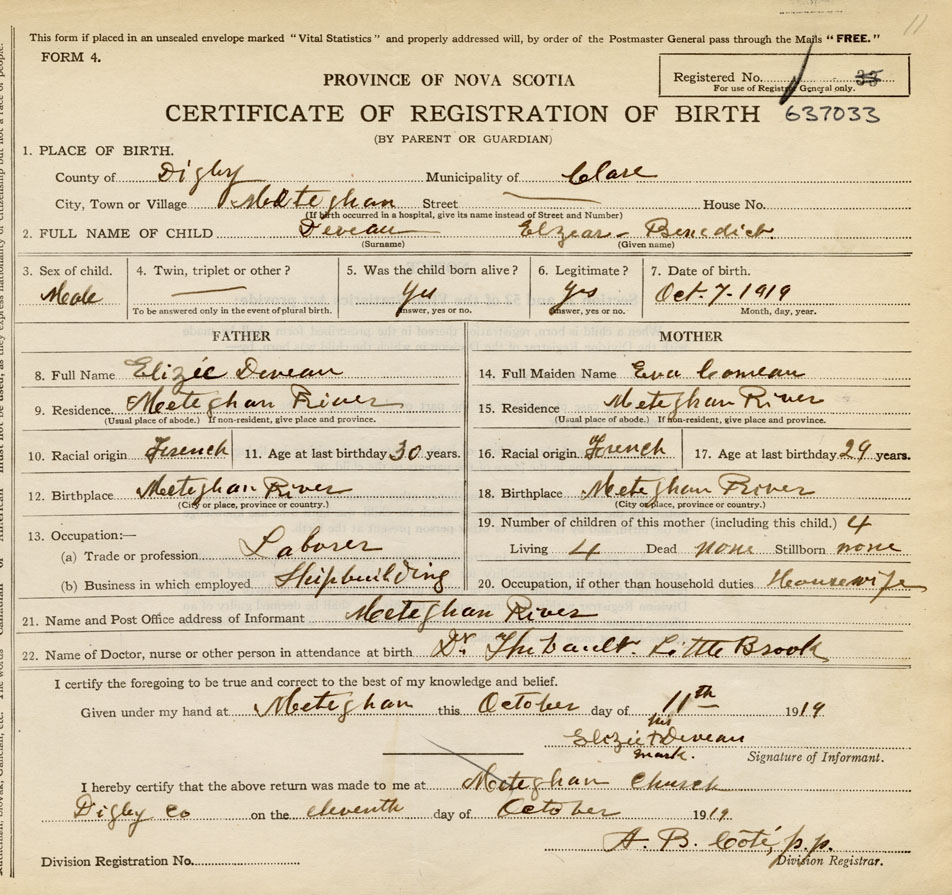 11
This form if placed in an unsealed envelope marked "Vital Statistics" and properly addressed will, by order of the Postmaster General pass through the Mails "FREE."
FORM 4.
Registered No. 33
For use of Registrar General only.
PROVINCE OF NOVA SCOTIA
CERTIFICATE OF REGISTRATION OF BIRTH 637033
(BY PARENT OR GUARDIAN)
1. PLACE OF BIRTH.
County of Digby Municipality of Clare
City, Town or Village Meteghan Street House No.
(If birth occurred in a hospital, give its name instead of Street and Number)
2. FULL NAME OF CHILD Deveau Elzear - Benedict.
(Surname) (Given name)
3. Sex of child. 4. Twin, triplet or other? 5. Was the child born alive? 6. Legitimate? 7. Date of birth.
Male yes yes Oct. 7 - 1919
To be answered only in the event of plural birth. Answer, yes or no. Answer, yes or no. Month, day, year.
FATHER MOTHER
8. Full Name Elizée Deveau 14. Full Maiden Name Eva Comeau
9. Residence. Meteghan River 15. Residence Meteghan River
(Usual place of abode.) If non-resident, give place and province. (Usual place of abode.) If non-resident, give place and province.
10. Racial origin French 11. Age at last birthday 30 years. 16. Racial origin French 17. Age at last birthday 29 years.
12. Birthplace Meteghan River 18. Birthplace Meteghan River
(City or place, province or country.) (City or place, province or country.)
13. Occupation:— 19. Number of children of this mother (including this child.) 4
(a) Trade or profession. Laborer Living 4 Dead none Stillborn none
(b) Business in which employed Shipbuilding 20. Occupation, if other than household duties Housewife
21. Name and Post Office address of Informant Meteghan River
22. Name of Doctor, nurse or other person in attendance at birth. Dr. Thibault. Little Brook
I certify the foregoing to be true and correct to the best of my knowledge and belief.
Given under my hand at Meteghan this October day of 11th 1919
his
Elizée + Deveau
mark. Signature of Informant.
I hereby certify that the above return was made to me at Meteghan Church
Digby Co on the eleventh day of October 1919.
A. B. Coté, p.p.
Division Registration No. Division Registrar.